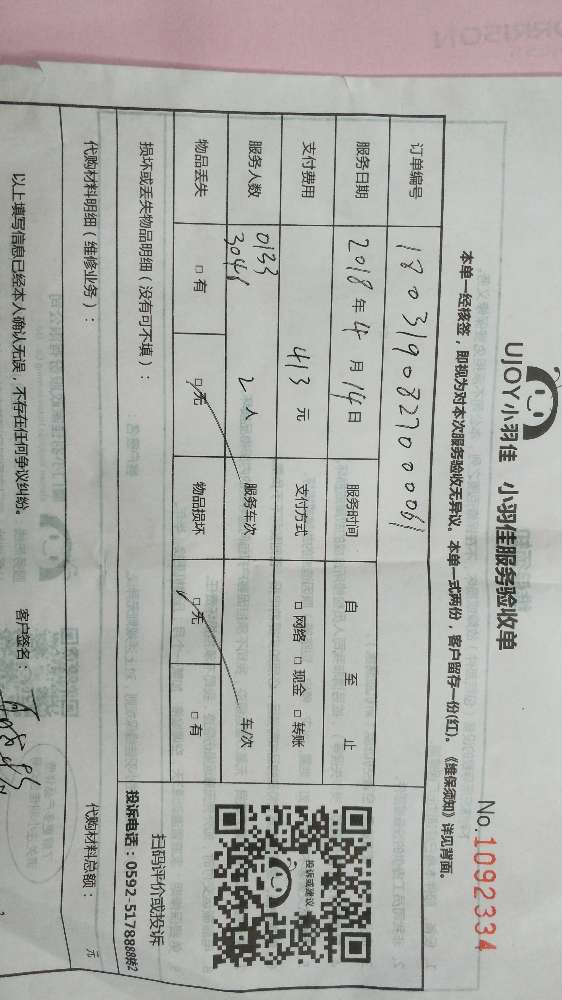 UJOY小羽佳 小羽佳服务验收单
No.1092334
本单一经核签，即视为对本次服务验收无异议。本单一式两份，客户留存一份(红)。《维保须知》详见背面。
订单编号 1803190827000061
服务日期 2018年4月14日 服务时间 自 至 止
支付费用 413元 支付方式 □网络 □现金 □转账
服务人数 0133 3048 2人 服务车次 车/次
物品丢失 □有 □无 物品损坏 □无 □有
损坏或丢失物品明细（没有可不填）：
投诉或建议
扫码评价或投诉
投诉电话：0592-5178888转2
代购材料明细（维修业务）： 代购材料总额： 元
以上填写信息已经本人确认无误，不存在任何争议纠纷。 客户签名：